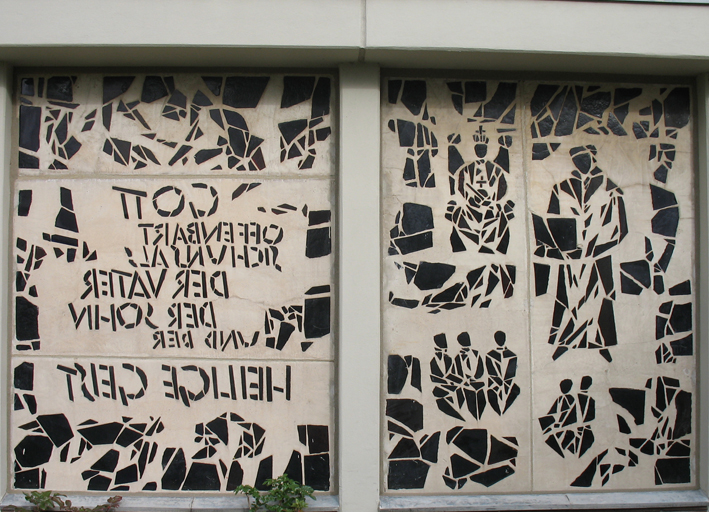 GOTT
OFFENBART
SICH UNS ALS
DER VATER
DER SOHN
UND DER
HEILIGE GEIST